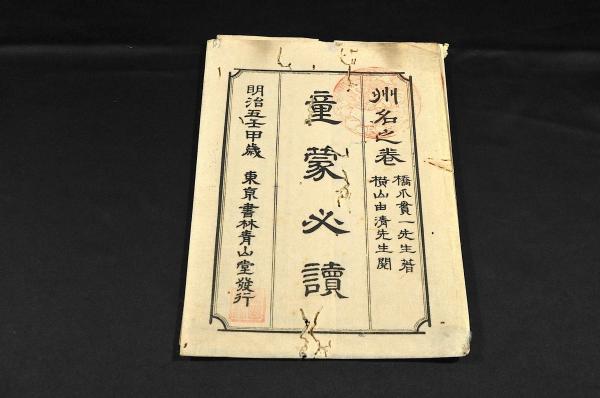 州名之卷
橋爪貫一先生著
橫山由清先生閲
童蒙必讀
明治五壬申歳
東京書林青山堂發行